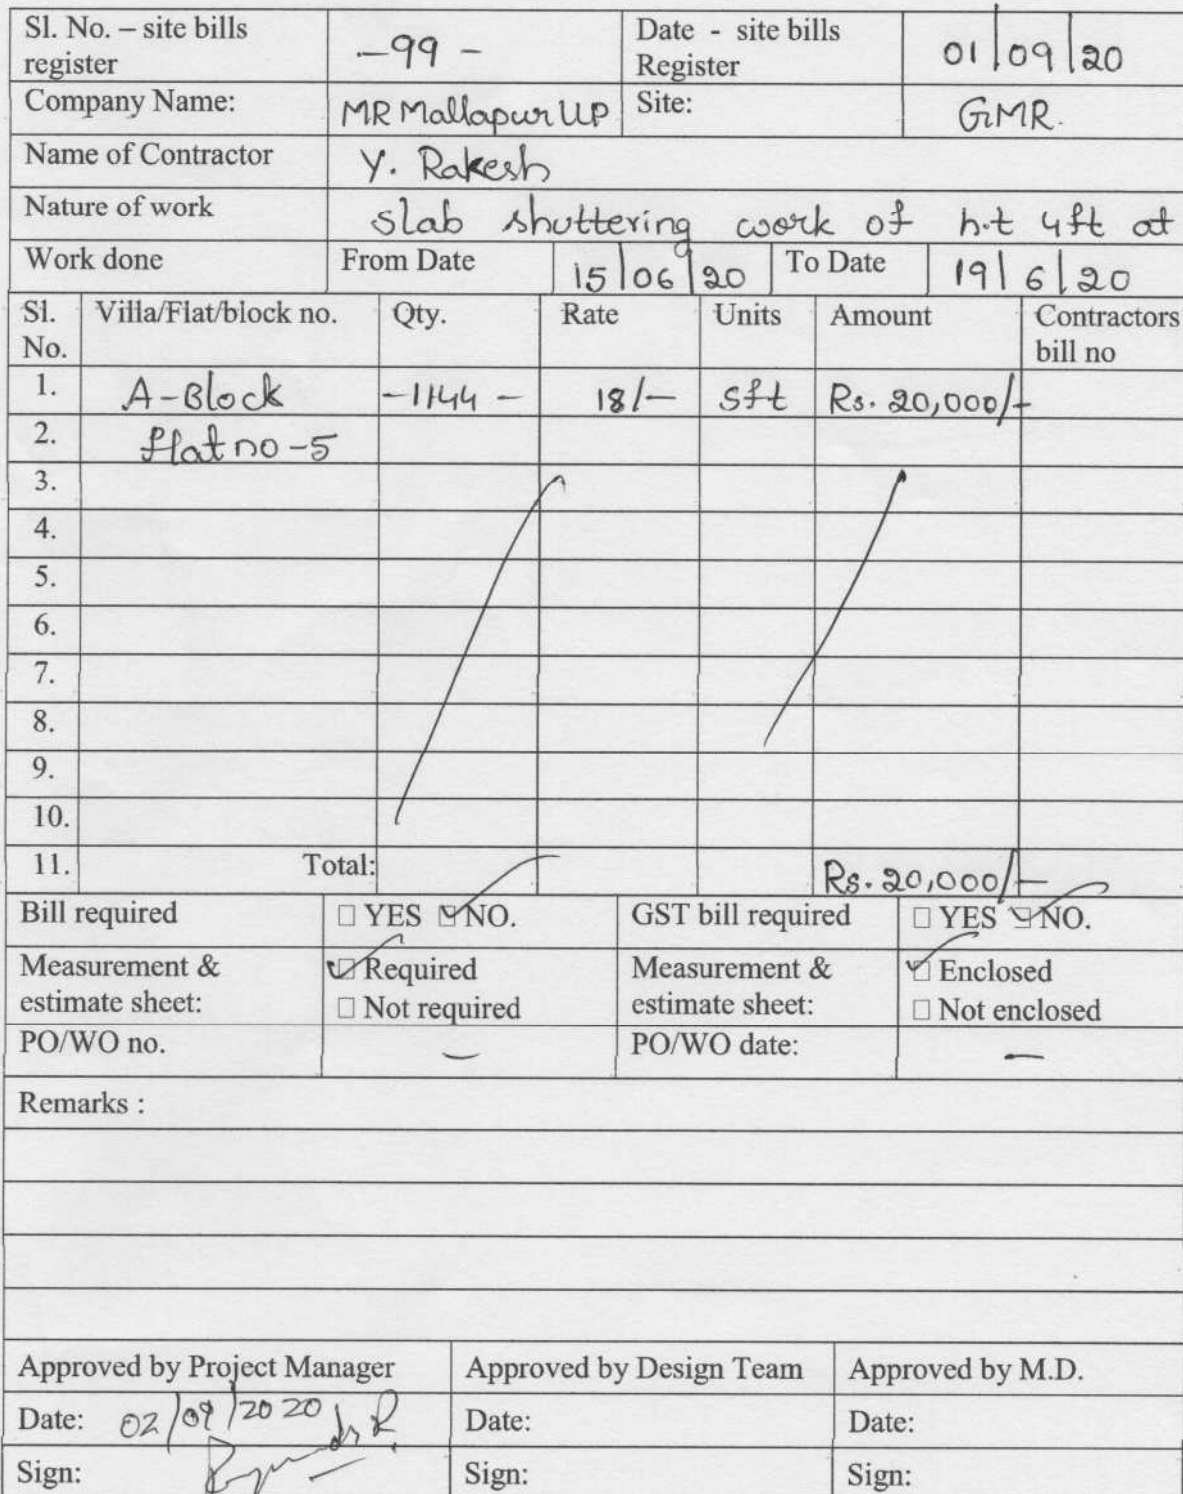 Sl. No. – site bills register -99 - Date - site bills Register 01/09/20
Company Name: MR Mallapur LLP Site: GMR.
Name of Contractor Y. Rakesh
Nature of work slab shuttering work of h.t 4ft at
Work done From Date 15/06/20 To Date 19/6/20
Sl. No. Villa/Flat/block no. Qty. Rate Units Amount Contractors bill no
1. A-Block -1144 - 18/- sft Rs. 20,000/-
2. flat no -5
3.
4.
5.
6.
7.
8.
9.
10.
11. Total: Rs. 20,000/-
Bill required □ YES ☑ NO. GST bill required □ YES ☑ NO.
Measurement & estimate sheet: ☑ Required □ Not required Measurement & estimate sheet: ☑ Enclosed □ Not enclosed
PO/WO no. - PO/WO date: -
Remarks :
Approved by Project Manager Approved by Design Team Approved by M.D.
Date: 02/09/2020 Date: Date:
Sign: Sign: Sign: